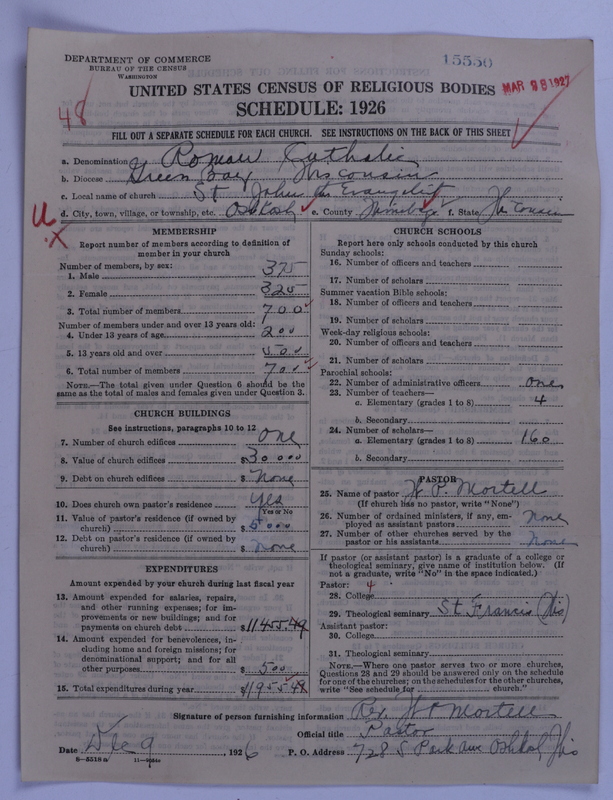 DEPARTMENT OF COMMERCE
BUREAU OF THE CENSUS
WASHINGTON
15550
MAR 28 1927
UNITED STATES CENSUS OF RELIGIOUS BODIES
SCHEDULE: 1926
48
FILL OUT A SEPARATE SCHEDULE FOR EACH CHURCH. SEE INSTRUCTIONS ON THE BACK OF THIS SHEET
a. Denomination Roman Catholic
b. Diocese Green Bay Wisconsin
c. Local name of church St John the Evangelist
d. City, town, village, or township, etc. Oshkosh e. County Winnebago f. State Wisconsin
MEMBERSHIP
Report number of members according to definition of
member in your church
Number of members, by sex:
1. Male 375
2. Female 325
3. Total number of members 700
Number of members under and over 13 years old:
4. Under 13 years of age 200
5. 13 years old and over 500
6. Total number of members 700
NOTE.—The total given under Question 6 should be the
same as the total of males and females given under Question 3.
CHURCH BUILDINGS
See instructions, paragraphs 10 to 12
7. Number of church edifices One
8. Value of church edifices $30000
9. Debt on church edifices $ None
10. Does church own pastor's residence yes
Yes or No
11. Value of pastor's residence (if owned by
church) $ 5000
12. Debt on pastor's residence (if owned by
church) $ None
EXPENDITURES
Amount expended by your church during last fiscal year
13. Amount expended for salaries, repairs,
and other running expenses; for im-
provements or new buildings; and for
payments on church debt $11455.49
14. Amount expended for benevolences, in-
cluding home and foreign missions; for
denominational support; and for all
other purposes $ 500
15. Total expenditures during year $11955.49
CHURCH SCHOOLS
Report here only schools conducted by this church
Sunday schools:
16. Number of officers and teachers
17. Number of scholars
Summer vacation Bible schools:
18. Number of officers and teachers
19. Number of scholars
Week-day religious schools:
20. Number of officers and teachers
21. Number of scholars
Parochial schools:
22. Number of administrative officers One
23. Number of teachers—
a. Elementary (grades 1 to 8) 4
b. Secondary
24. Number of scholars—
a. Elementary (grades 1 to 8) 160
b. Secondary
PASTOR
25. Name of pastor W P. Mortell
(If church has no pastor, write "None")
26. Number of ordained ministers, if any, em-
ployed as assistant pastors None
27. Number of other churches served by the
pastor or his assistants None
If pastor (or assistant pastor) is a graduate of a college or
theological seminary, give name of institution below. (If
not a graduate, write "No" in the space indicated.)
Pastor: 4
28. College
29. Theological seminary St. Francis (Wis)
Assistant pastor:
30. College
31. Theological seminary
NOTE.—Where one pastor serves two or more churches,
Questions 28 and 29 should be answered only on the schedule
for one of the churches; on the schedules for the other churches
write "See schedule for church."
Signature of person furnishing information Rev. W P Mortell
Official title Pastor
Date Dec 9, 1926 P. O. Address 728 S Park Ave Oshkosh, Wis
8—5518a 11—9054c